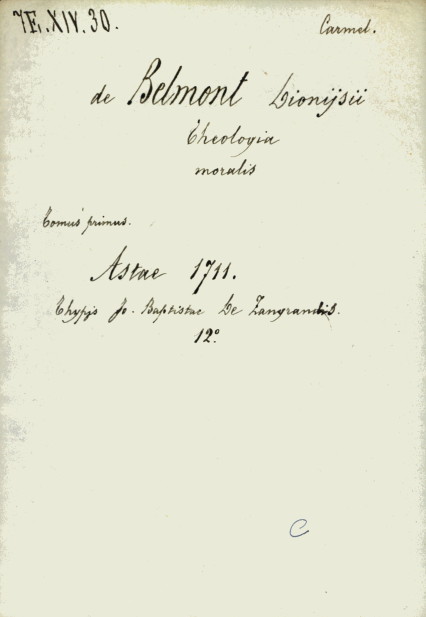 7E.XIV.30. Carmel.
de Belmont Dionijsii
Theologia
moralis
Tomus primus.
Astae 1711.
Thypjs Jo. Baptistae De Zangrandis.
12º
C